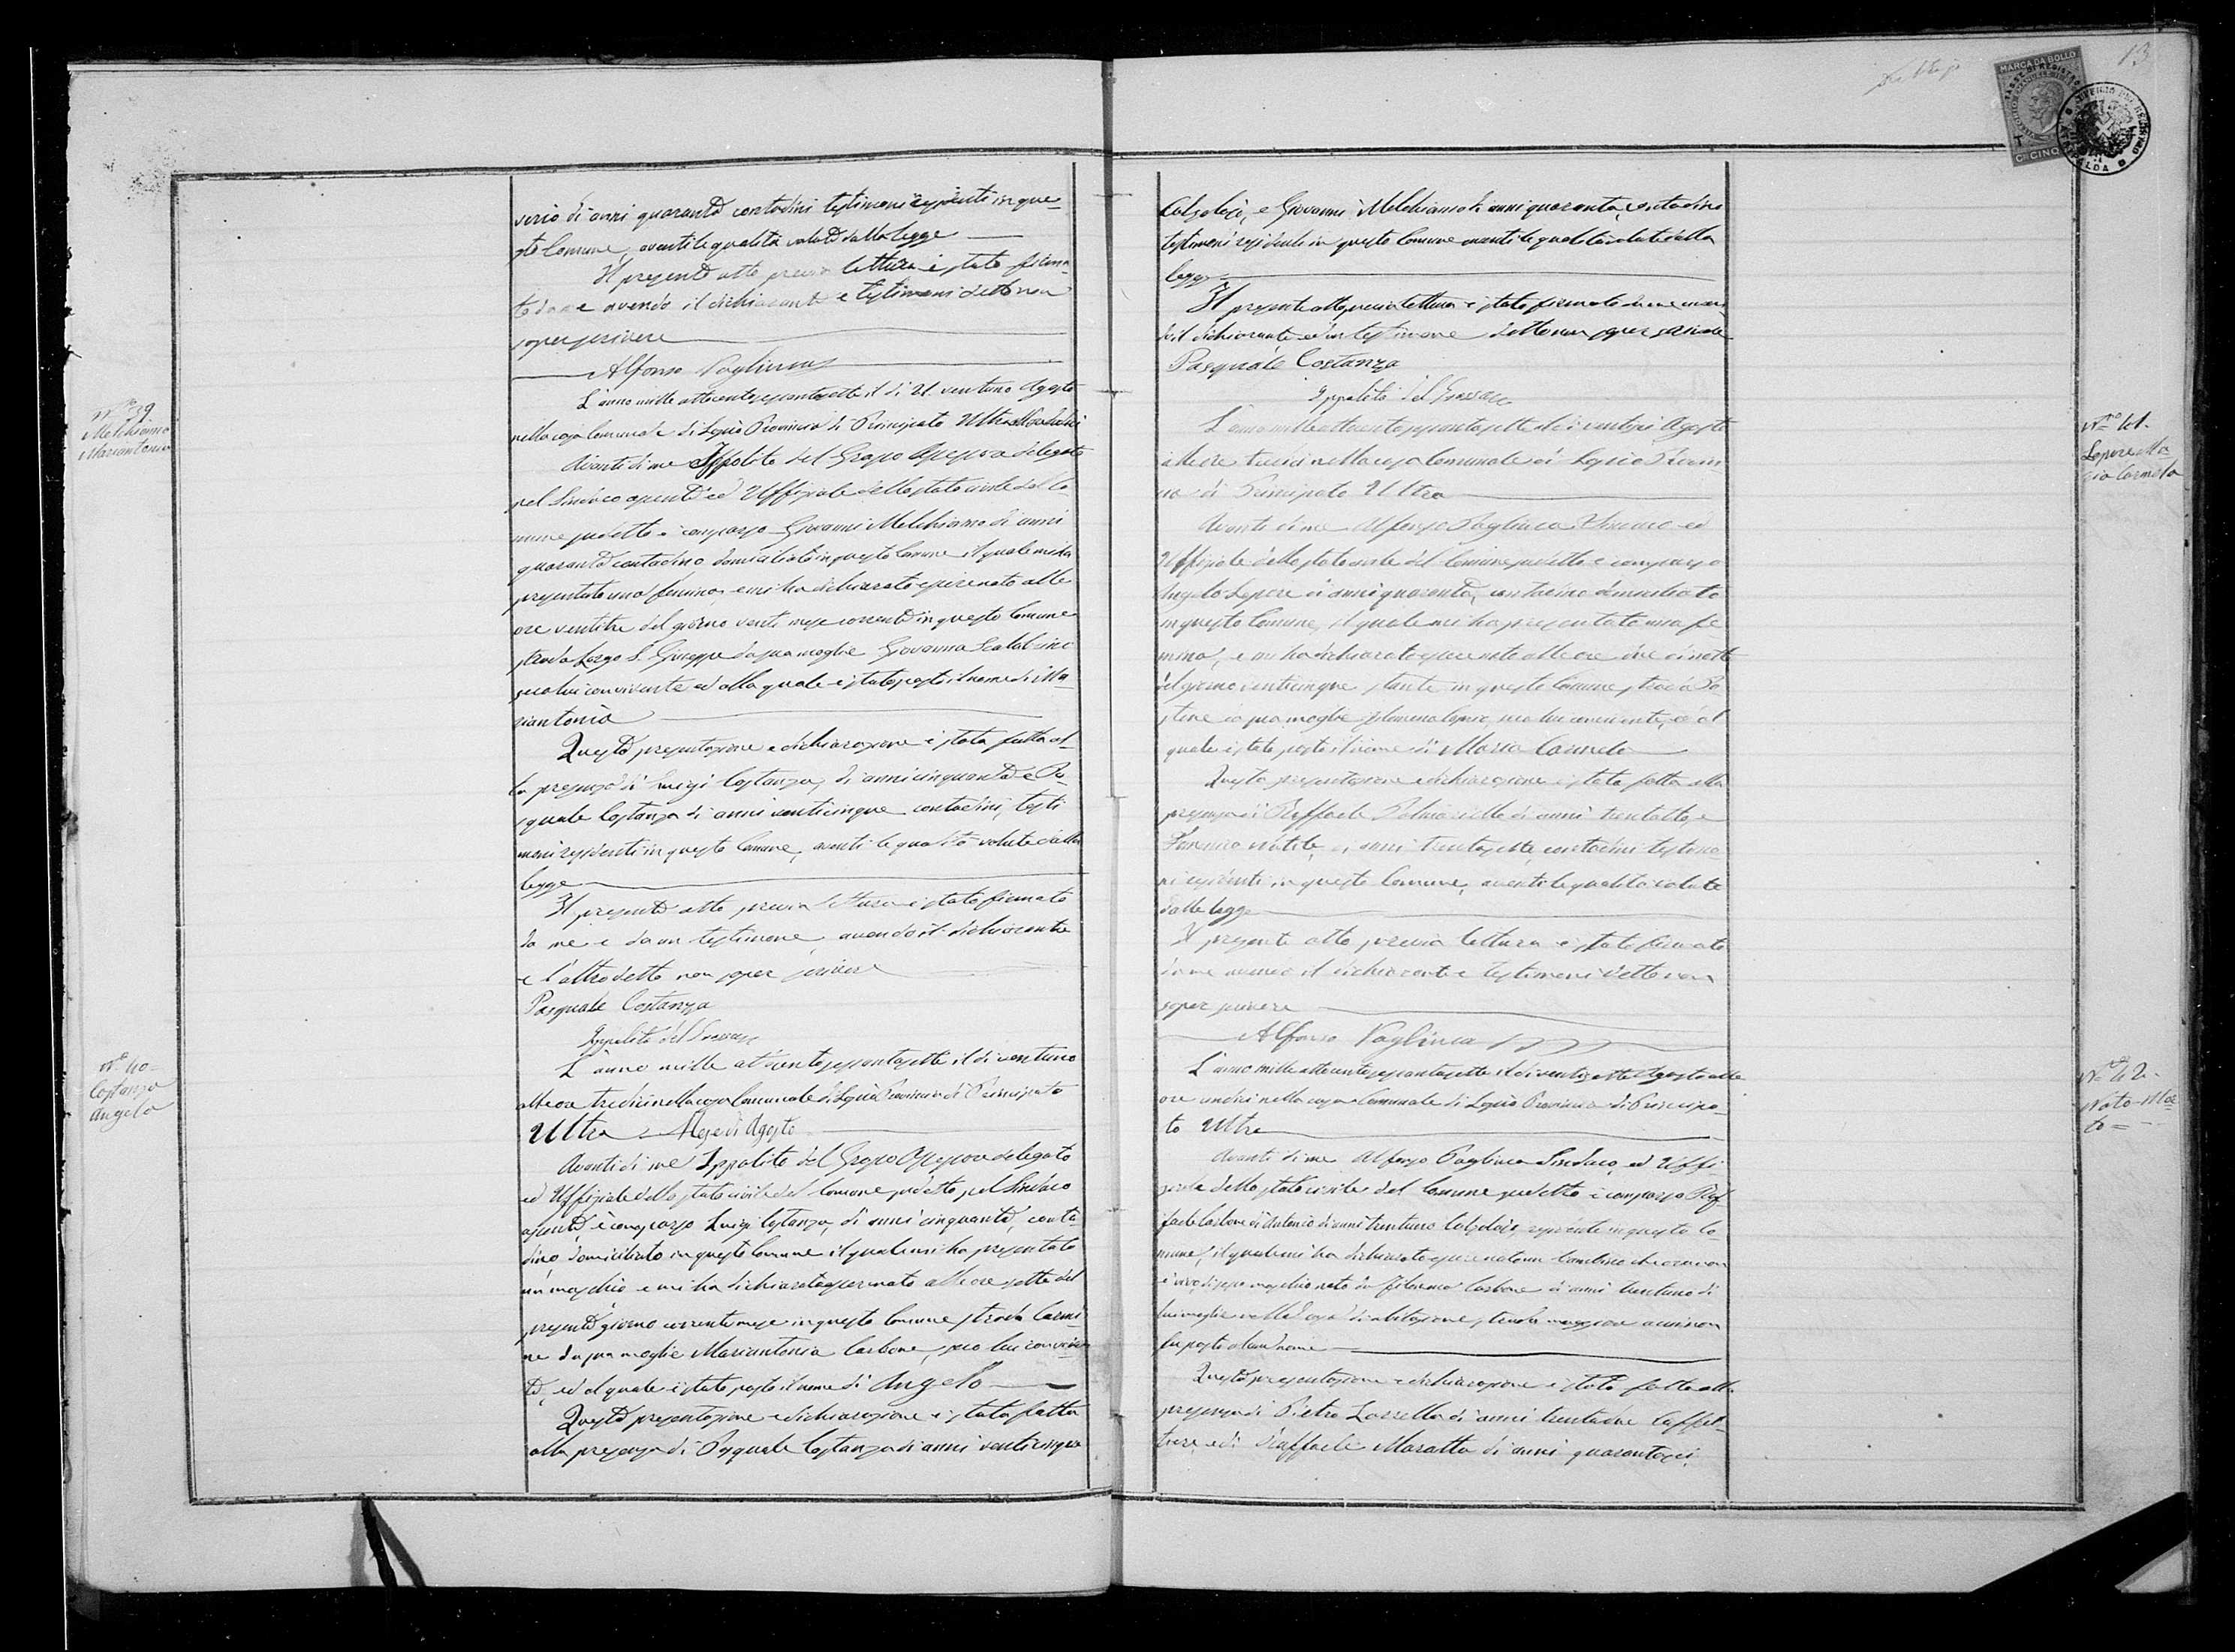 verio di anni quaranta contadini testimoni residenti in que-
sto Comune, aventi le qualità volute dalla legge
Il presente atto previa lettura è stato firma-
to da me avendo il dichiarante e testimoni detto non
saper scrivere
Alfonso Pagliuca
N.ro 39
Melchionno
Mariantonia
L'anno mille ottocentosessantasette il dì 21 ventuno Agosto
nella casa Comunale di Provincia di Principato Ultra
Avanti di me Ippolito del Grosso Assessore delegato
pel Sindaco assente ed Uffiziale dello stato civile del Co-
mune suddetto è comparso Giovanni Melchionno di anni
quaranta contadino domiciliato in questo Comune il quale mi ha
presentato una femina, e mi ha dichiarato essere nata alle
ore ventitre del giorno venti mese corrente in questo Comune
strada Largo S. Giuseppe da sua moglie Giovanna
seco lui convivente ed alla quale è stato posto il nome di Ma-
riantonia
Questa presentazione e dichiarazione è stata fatta al-
la presenza di Luigi Costanza, di anni cinquanta e Pa-
squale Costanza di anni venticinque contadini, testi
moni residenti in questo Comune, aventi le qualità volute dalla
legge
Il presente atto previa lettura è stato firmato
da me e da un testimone avendo il dichiarante
e l'altro detto non saper scrivere
Pasquale Costanza
Ippolito del Grosso
N.ro 40
Costanza
Angelo
L'anno mille ottocentosessantasette il dì ventuno
alle ore tredici nella casa Comunale di Provincia di Principato
Ultra Mese di Agosto
Avanti di me Ippolito del Grosso Assessore delegato
ed Uffiziale dello stato civile del Comune suddetto pel Sindaco
assente è comparso Luigi Costanza, di anni cinquanta, conta-
dino, domiciliato in questo Comune il quale mi ha presentato
un maschio e mi ha dichiarato essere nato alle ore sette del
presente giorno corrente mese in questo Comune strada Carmi-
ne da sua moglie Mariantonia Carbone, seco lui conviven
te, ed al quale è stato posto il nome di Angelo
Questa presentazione e dichiarazione è stata fatta
alla presenza di Pasquale Costanza di anni venticinque
13
MARCA DA BOLLO
TASSE DI REGISTRO
Calzolajo, e Giovanni Melchionno di anni quaranta, contadino
testimoni residenti in questo Comune aventi le qualità volute dalla
legge
Il presente atto previa lettura è stato firmato da me aven-
do il dichiarante ed un testimone detto non saper scrivere
Pasquale Costanza
Ippolito del Grosso
N.ro 41.
Lepore Ma-
ria Carmela
L'anno mille ottocentosessantasette il dì Agosto
alle ore tredici nella casa Comunale di Provin
cia di Principato Ultra
Avanti di me Alfonso Pagliuca Sindaco ed
Uffiziale dello stato civile del Comune suddetto è comparso
Angelo Lepore di anni quaranta, contadino domiciliato
in questo Comune, il quale mi ha presentato una fe
mina, e mi ha dichiarato essere nata alle ore due di notte
del giorno venticinque stante in questo Comune strada
da sua moglie Filomena seco lui convivente, ed al
quale è stato posto il nome di Maria Carmela
Questa presentazione e dichiarazione è stata fatta alla
presenza di Raffaele di anni trentotto, e
di anni trentasette, contadini testimo
ni residenti in questo Comune, aventi le qualità volute
dalla legge
Il presente atto previa lettura è stato firmato
da me avendo il dichiarante e testimoni detto non
saper scrivere
Alfonso Pagliuca
N.ro 42.
Nato Mor
to
L'anno mille ottocentosessantasette il dì ventisette Agosto alle
ore undici nella casa Comunale di Provincia di Principa-
to Ultra
Avanti di me Alfonso Pagliuca Sindaco, ed Uffi-
ziale dello stato civile del Comune suddetto è comparso Raf-
faele Carbone di Antonio di anni trentuno Calzolaio, residente in questo Co
mune, il quale mi ha dichiarato essere nato un bambino che ora non
è vivo, di sesso maschio nato da Filomena Carbone di anni trentuno di
lui moglie nella casa di abitazione, strada maggiore a cui non
fu posto alcun nome
Questa presentazione e dichiarazione è stata fatta alla
presenza di Pietro di anni trentadue Caffet-
tiere, e di Raffaele Maratta di anni quarantasei,